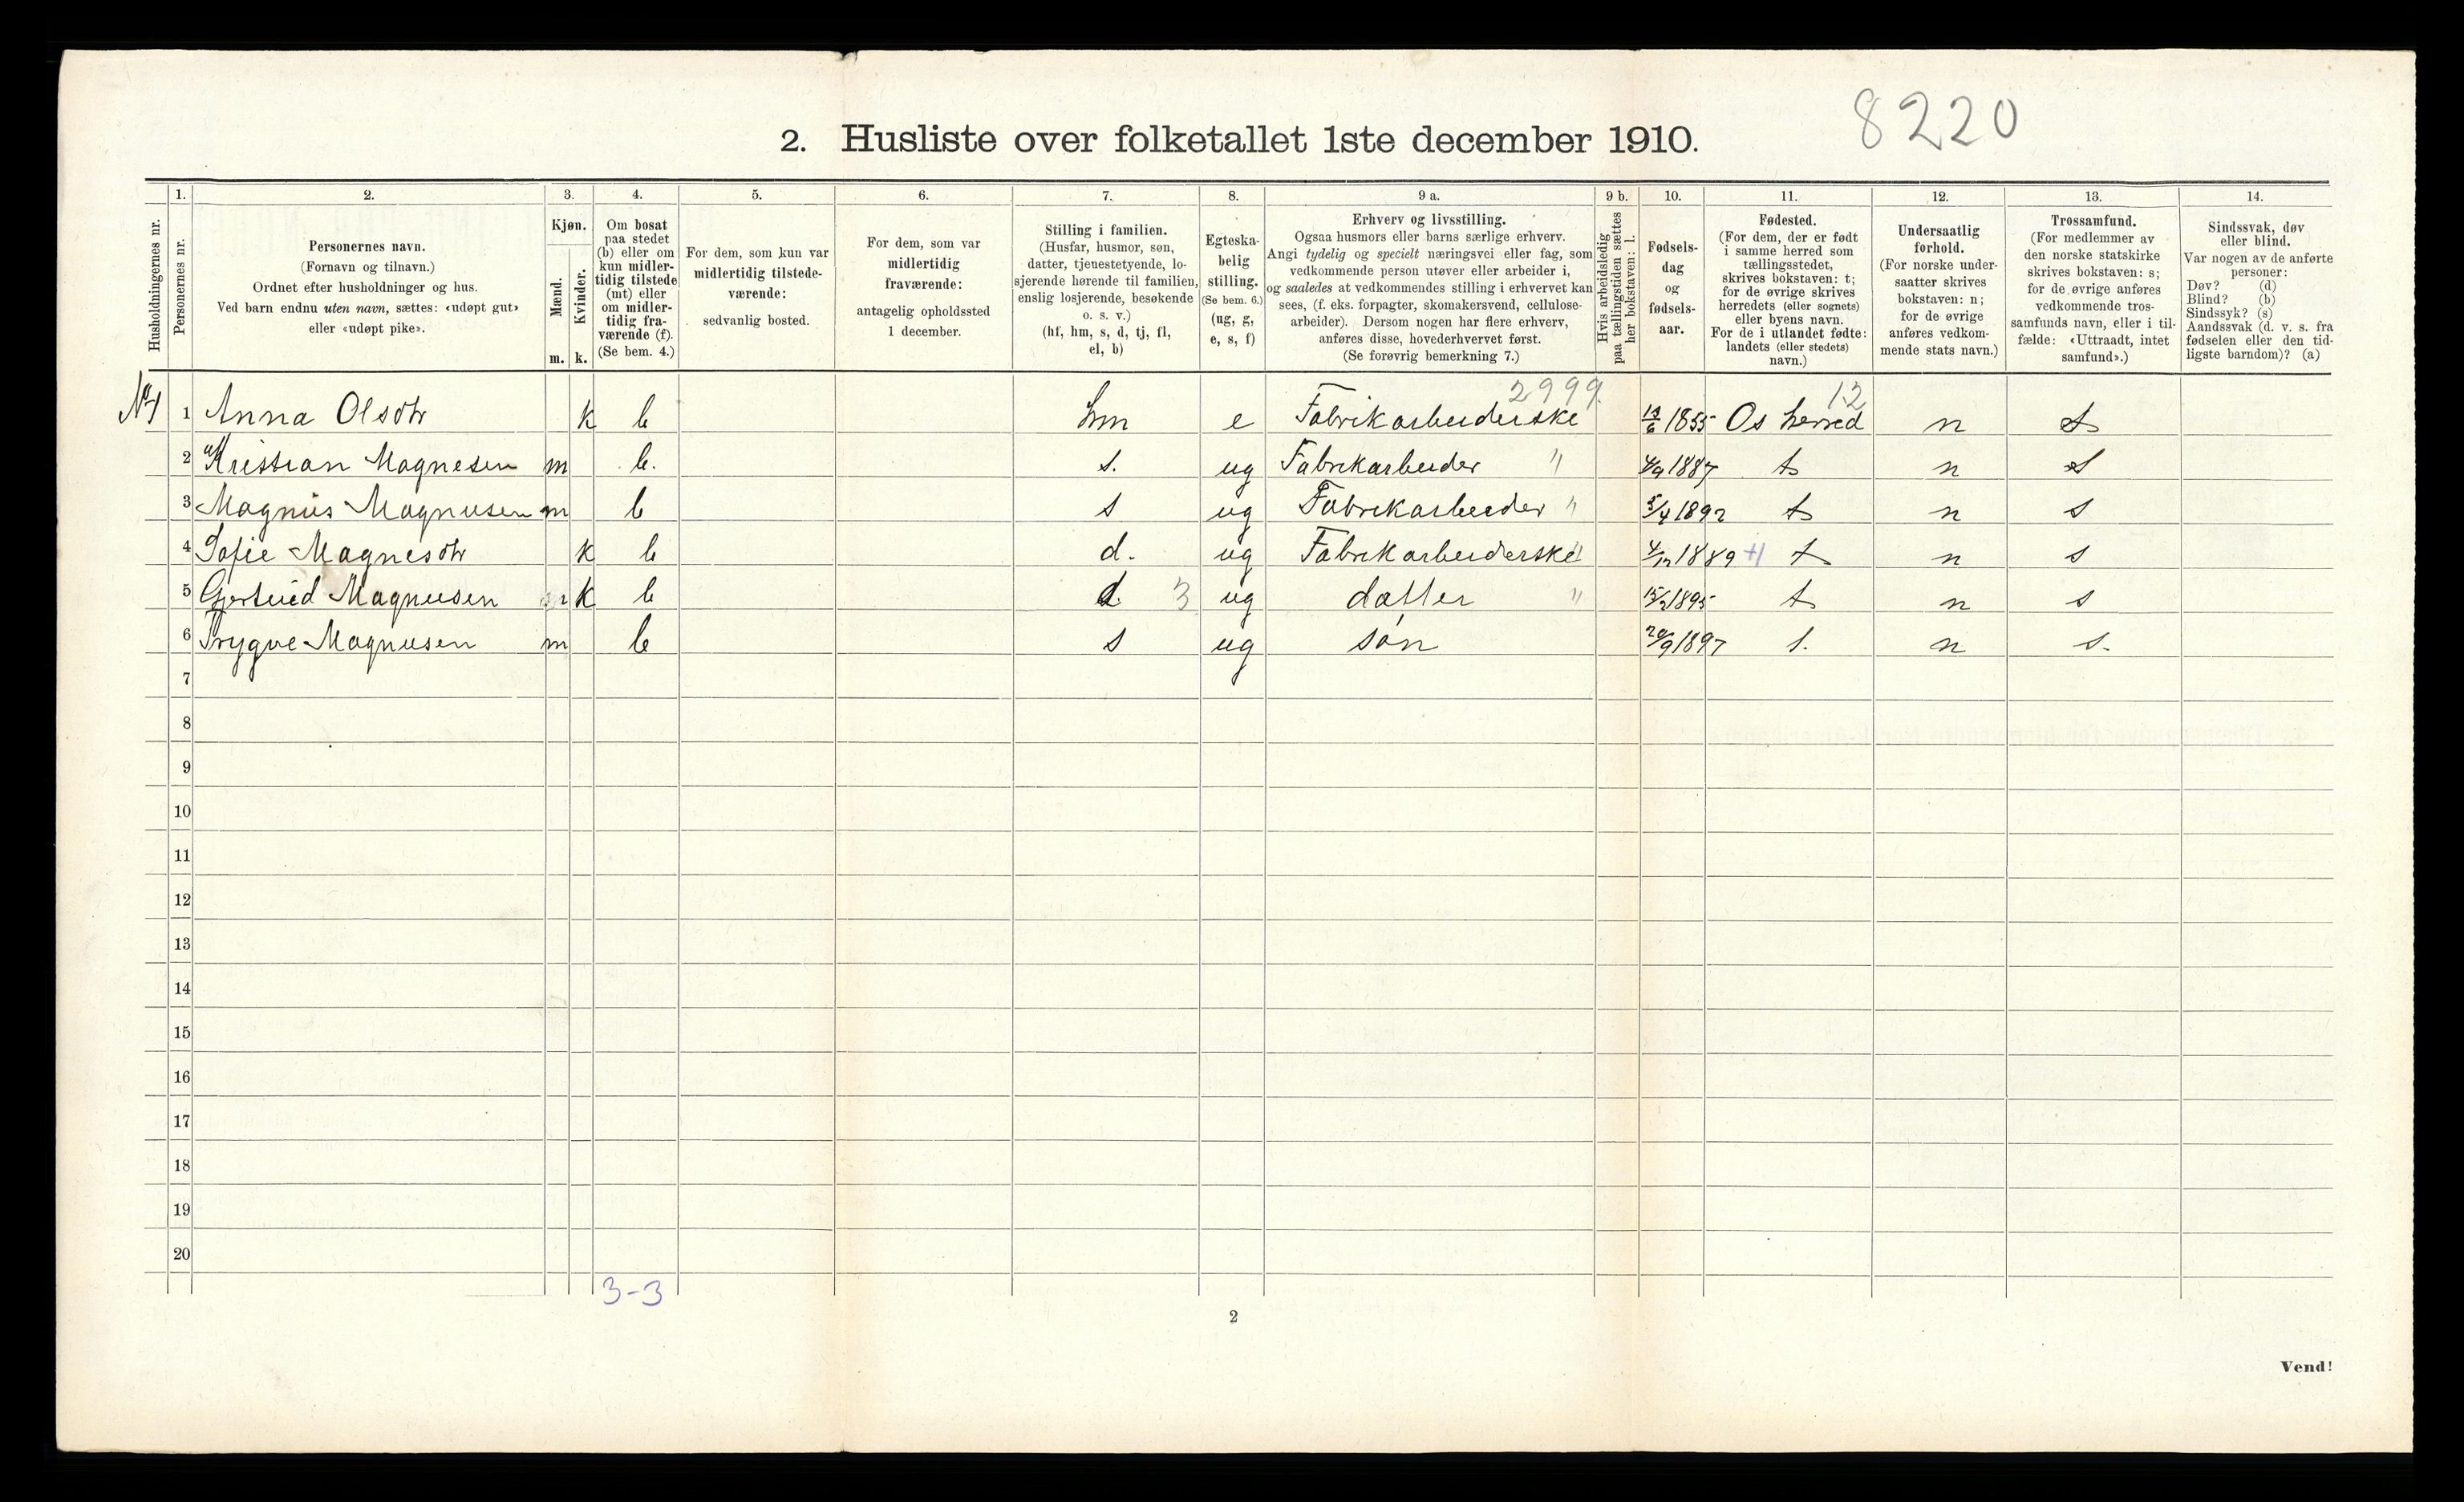 8220
2. Husliste over folketallet 1ste december 1910.
1. 2. 3. 4. 5. 6. 7. 8. 9 a. 9 b. 10. 11. 12. 13. 14.
Husholdningernes nr.
Personernes nr.
Personernes navn.
(Fornavn og tilnavn.)
Ordnet efter husholdninger og hus.
Ved barn endnu uten navn, sættes: «udøpt gut»
eller «udøpt pike».
Kjøn.
Mænd.
Kvinder.
m. k.
Om bosat
paa stedet
(b) eller om
kun midler-
tidig tilstede
(mt) eller
om midler-
tidig fra-
værende (f).
(Se bem. 4.)
For dem, som kun var
midlertidig tilstede-
værende:
sedvanlig bosted.
For dem, som var
midlertidig
fraværende:
antagelig opholdssted
1 december.
Stilling i familien.
(Husfar, husmor, søn,
datter, tjenestetyende, lo-
sjerende hørende til familien,
enslig losjerende, besøkende
o. s. v.)
(hf, hm, s, d, tj, fl,
el, b)
Egteska-
belig
stilling.
(Se bem. 6.)
(ug, g,
e, s, f)
Erhverv og livsstilling.
Ogsaa husmors eller barns særlige erhverv.
Angi tydelig og specielt næringsvei eller fag, som
vedkommende person utøver eller arbeider i,
og saaledes at vedkommendes stilling i erhvervet kan
sees, (f. eks. forpagter, skomakersvend, cellulose-
arbeider). Dersom nogen har flere erhverv,
anføres disse, hovederhvervet først.
(Se forøvrig bemerkning 7.)
Hvis arbeidsledig
paa tællingstiden sættes
her bokstaven: l.
Fødsels-
dag
og
fødsels-
aar.
Fødested.
(For dem, der er født
i samme herred som
tællingsstedet,
skrives bokstaven: t;
for de øvrige skrives
herredets (eller sognets)
eller byens navn.
For de i utlandet fødte:
landets (eller stedets)
navn.)
Undersaatlig
forhold.
(For norske under-
saatter skrives
bokstaven: n;
for de øvrige
anføres vedkom-
mende stats navn.)
Trossamfund.
(For medlemmer av
den norske statskirke
skrives bokstaven: s;
for de øvrige anføres
vedkommende tros-
samfunds navn, eller i til-
fælde: «Uttraadt, intet
samfund».)
Sindssvak, døv
eller blind.
Var nogen av de anførte
personer:
Døv? (d)
Blind? (b)
Sindssyk? (s)
Aandssvak (d. v. s. fra
fødselen eller den tid-
ligste barndom)? (a)
2999. 12
No 1 1 Anna Olsdtr k b hm e Fabrikarbeiderske 1855 Os herred n s
2 Kristian Magnesen m b. s. ug Fabrikarbeider " 4/9 1887 t n s
3 Magnus Magnusen m b s ug Fabrikarbeider " 5/4 1892 t n s
4 Sofie Magnesdtr k b d. ug Fabrikarbeiderske " 4/12 1889 t n s
5 Gjertrud Magnusen k b d 3 ug datter " 15/2 1895 t n s
6 Trygve Magnusen m b s ug søn 20/9 1897 t. n s.
7
8
9
10
11
12
13
14
15
16
17
18
19
20
3-3
2
Vend!